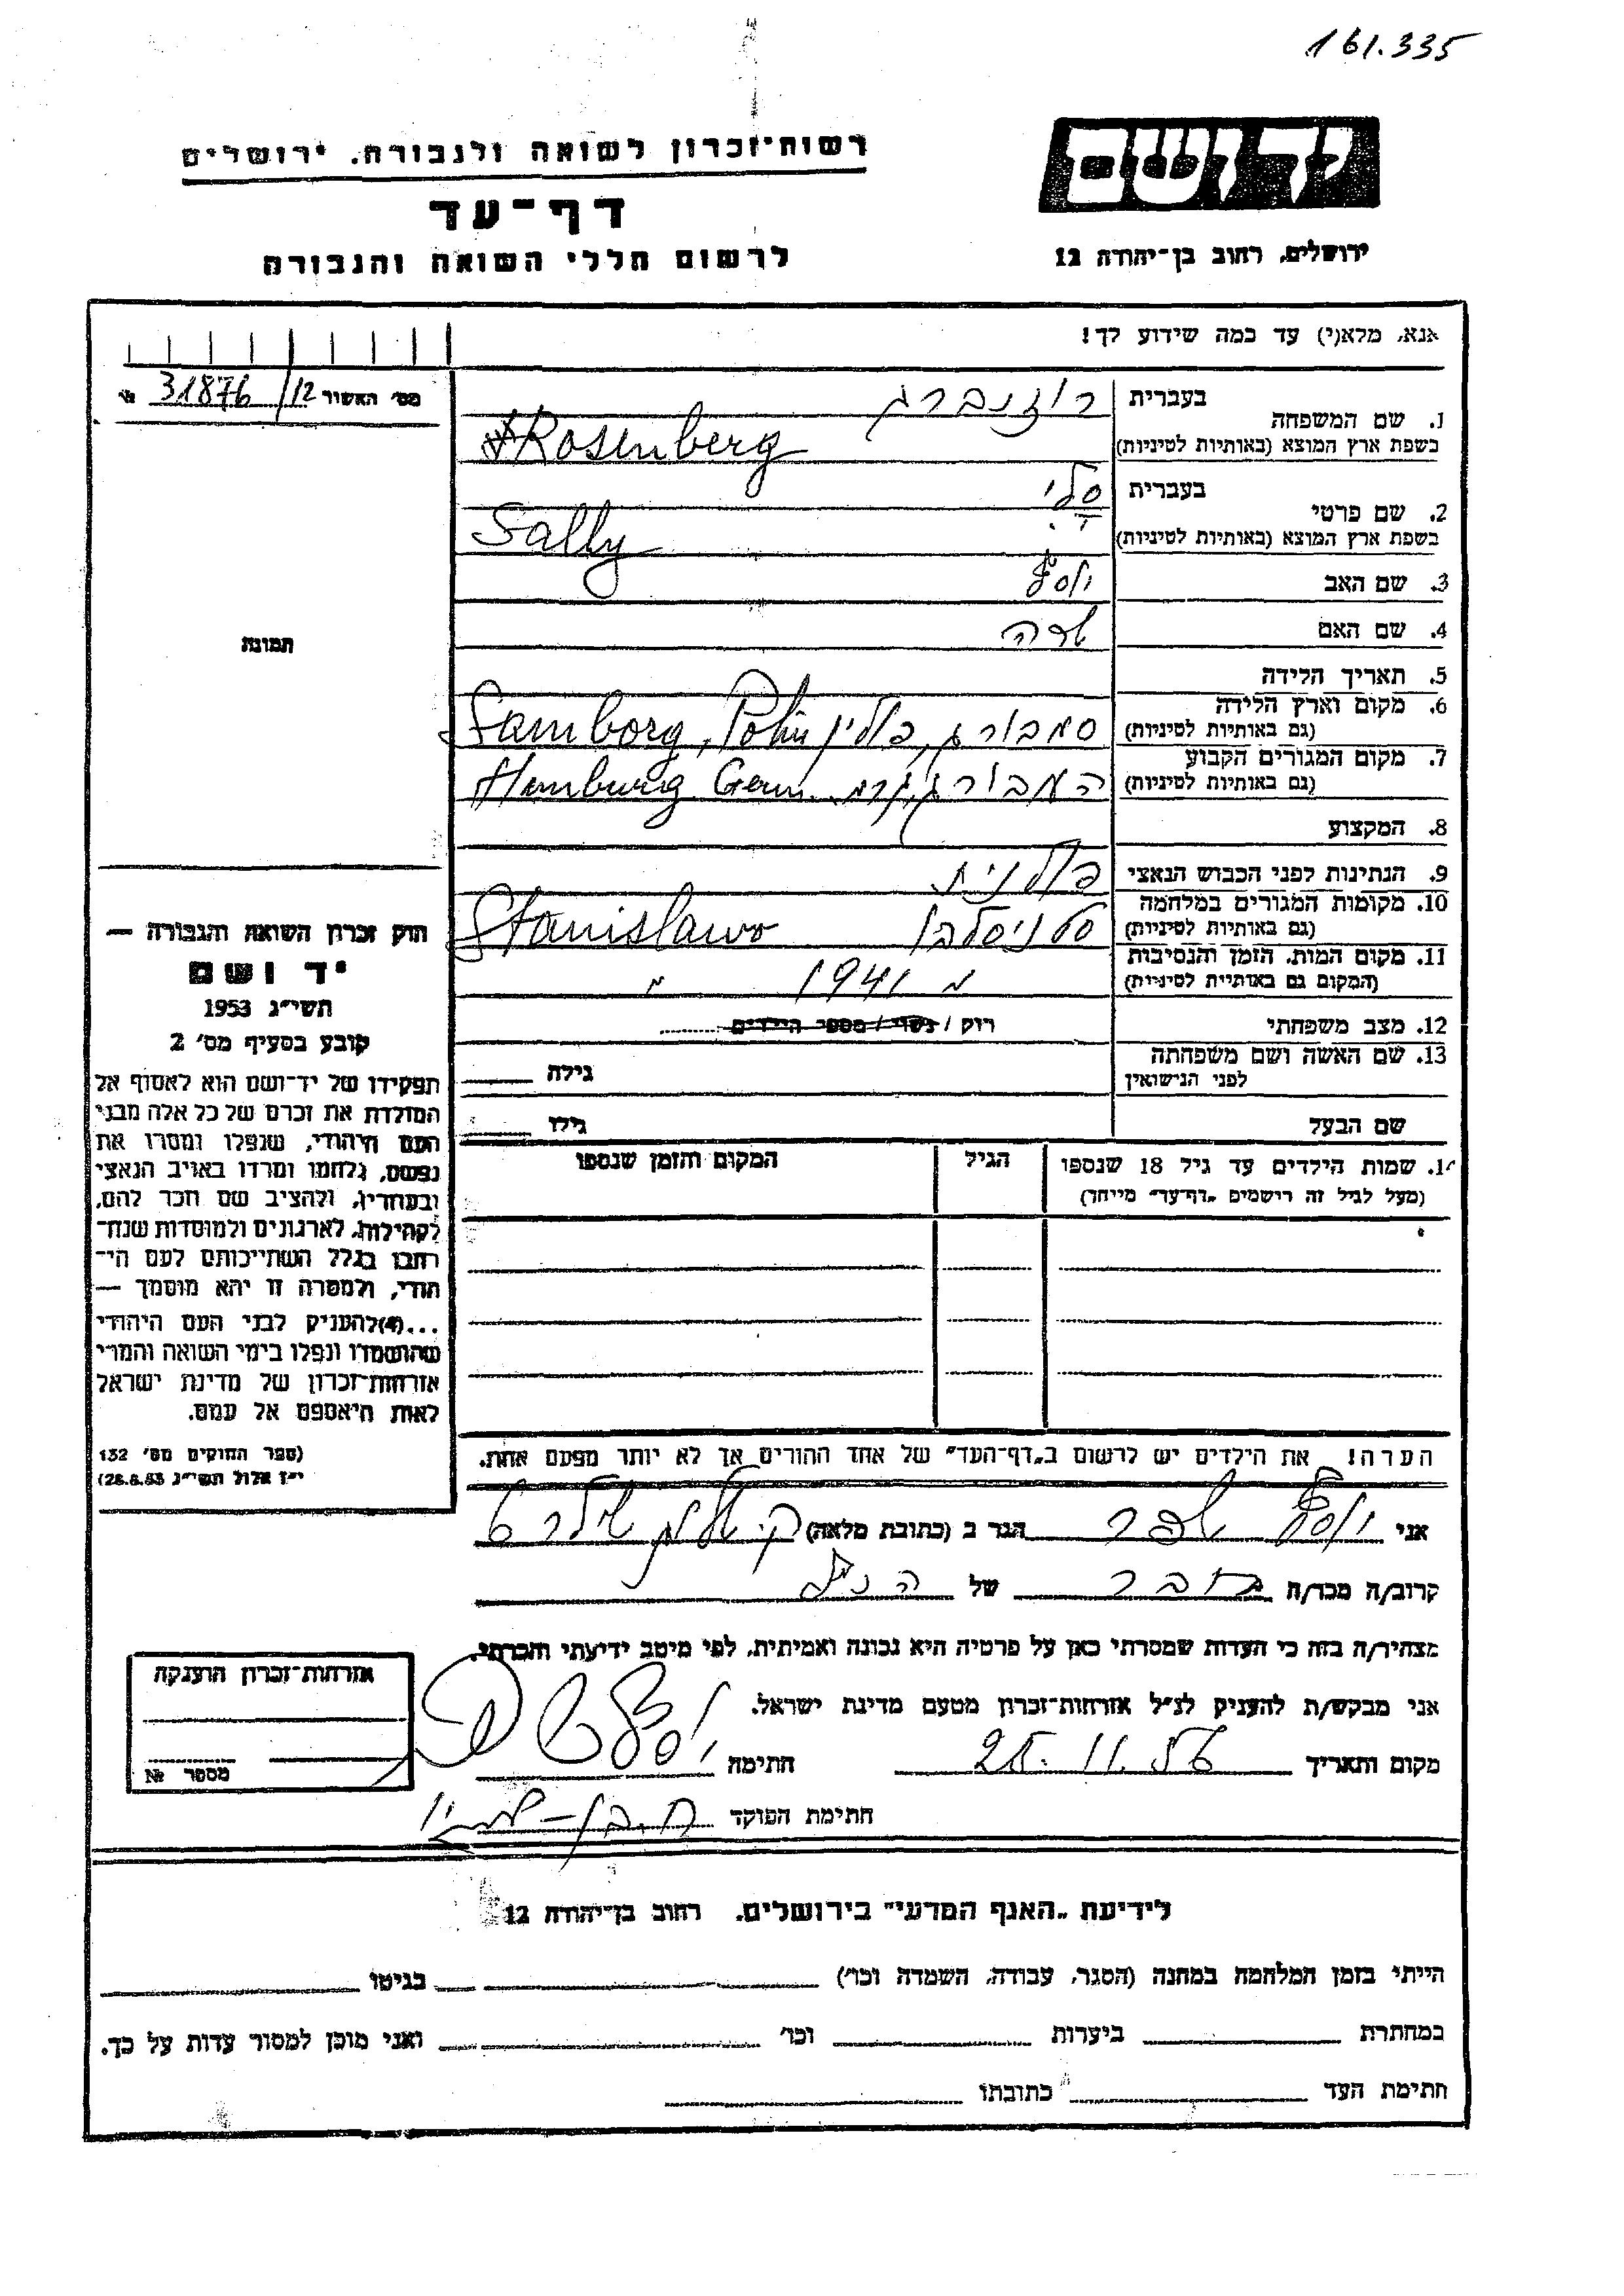 161.335
יד ושם
רשות־זכרון לשואה ולגבורה. ירושלים
דף־עד
לרשום חללי השואה והגבורה
ירושלים, רחוב בן־יהודה 12
אנא, מלא(י) עד כמה שידוע לך!
מס׳ האשור 31876/12 №
1. שם המשפחה בעברית רוזנברג
בשפת ארץ המוצא (באותיות לטיניות) Rosenberg
2. שם פרטי בעברית סלי
בשפת ארץ המוצא (באותיות לטיניות) Sally
3. שם האב יוסף
4. שם האם
תמונה
5. תאריך הלידה
6. מקום וארץ הלידה
(גם באותיות לטיניות) סמבורג, פולין Samborg, Polin
7. מקום המגורים הקבוע
(גם באותיות לטיניות) המבורג, גרמ. Hamburg Germ.
8. המקצוע
9. הנתינות לפני הכבוש הנאצי פולנית
10. מקומות המגורים במלחמה
(גם באותיות לטיניות) סטניסלבו Stanislawo
11. מקום המות, הזמן והנסיבות
(המקום גם באותיות לטיניות) 1941
12. מצב משפחתי רוק / נשוי / מספר הילדים
13. שם האשה ושם משפחתה
לפני הנישואין גילה
שם הבעל גילו
14. שמות הילדים עד גיל 18 שנספו הגיל המקום והזמן שנספו
(מעל לגיל זה רישמים "דף־עד" מייחד)
חוק זכרון השואה והגבורה —
יד ושם
תשי״ג 1953
קובע בסעיף מס׳ 2
תפקידו של יד־ושם הוא לאסוף אל
המולדת את זכרם של כל אלה מבני
העם היהודי, שנפלו ומסרו את
נפשם, נלחמו ומרדו באויב הנאצי
ובעוזריו, ולהציב שם וזכר להם,
לקהילות, לארגונים ולמוסדות שנח־
רבו בגלל השתייכותם לעם הי־
הודי, ולמטרה זו יהא מוסמך —
...(4) להעניק לבני העם היהודי
שהושמדו ונפלו בימי השואה והמרי
אזרחות־זכרון של מדינת ישראל
לאות היאספם אל עמם.
(ספר החוקים מס׳ 132
י״ז אלול תשי״ג 28.8.53)
הערה! את הילדים יש לרשום ב"דף־העד" של אחד ההורים אך לא יותר מפעם אחת.
אני יוסף הגר ב (כתובת מלאה)
קרוב/ה מכר/ה חבר של הנ״ל
מצהיר/ה בזה כי העדות שמסרתי כאן על פרטיה היא נכונה ואמיתית, לפי מיטב ידיעתי והכרתי.
אני מבקש/ת להעניק לנ״ל אזרחות־זכרון מטעם מדינת ישראל.
מקום ותאריך 25.11.56 חתימה
חתימת הפוקד
אזרחות־זכרון הוענקה
מספר №
לידיעת "האגף המדעי" בירושלים, רחוב בן־יהודה 12
הייתי בזמן המלחמה במחנה (הסגר, עבודה, השמדה וכו׳) בגיטו
במחתרת ביערות וכו׳ ואני מוכן למסור עדות על כך.
חתימת העד כתובתו